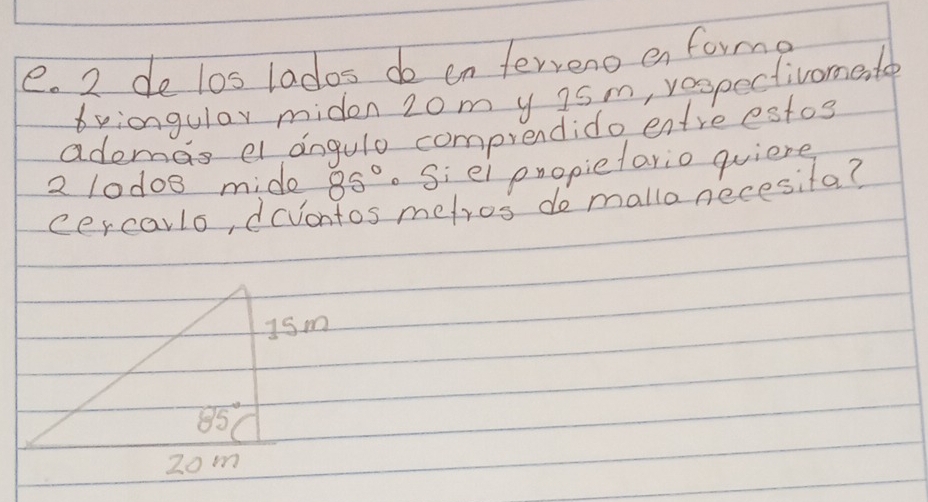 e. 2 de los lados de un terreno en forma
triangular miden 20m y 15m, respectivamente
además el ángulo comprendido entre estos
2 lados mide 85°. Si el propietario quiere
cercarlo, ¿cuántos metros de malla necesita?
15m
85°
20m